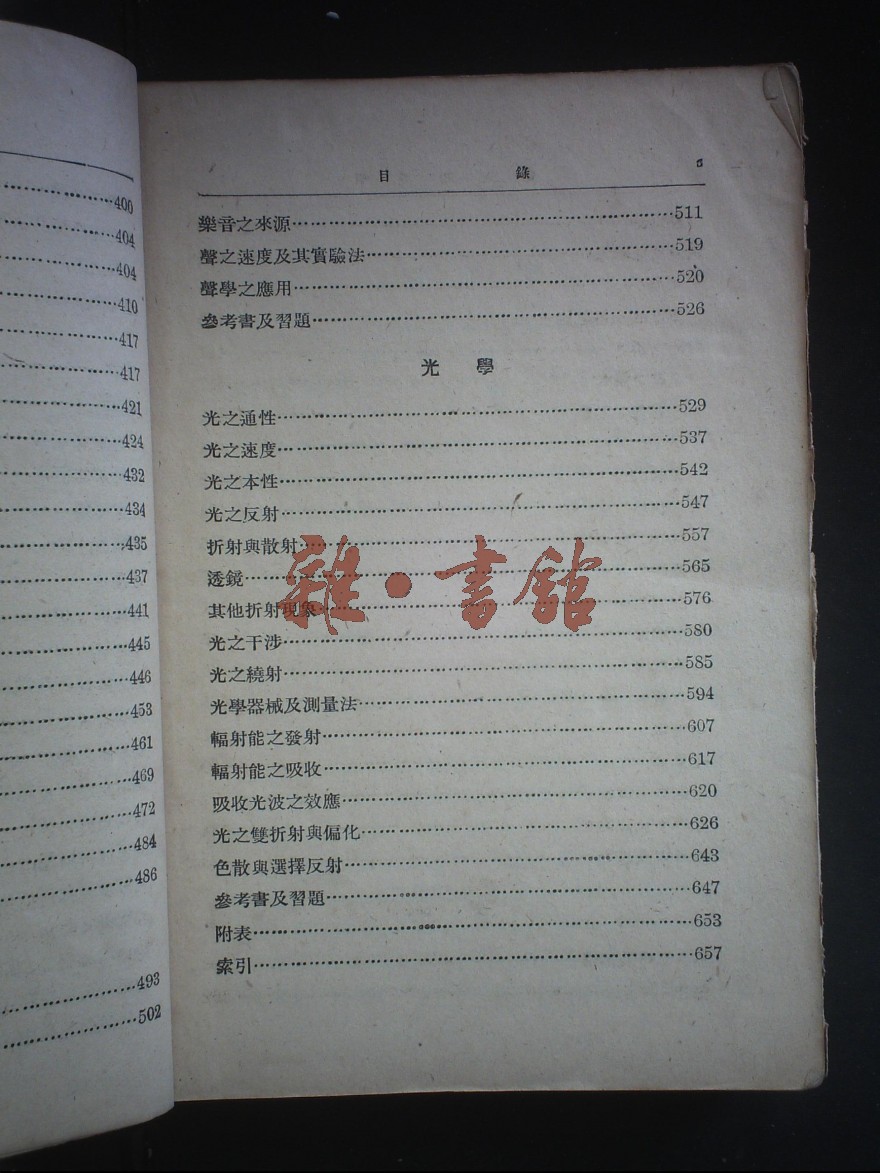 400
404
404
410
417
417
421
424
432
434
435
437
441
445
446
453
461
469
472
484
486
493
502
目 錄 5
樂音之來源 511
聲之速度及其實驗法 519
聲學之應用 520
參考書及習題 526
光 學
光之通性 529
光之速度 537
光之本性 542
光之反射 547
折射與散射 557
透鏡 565
其他折射現象 576
光之干涉 580
光之繞射 585
光學器械及測量法 594
輻射能之發射 607
輻射能之吸收 617
吸收光波之效應 620
光之雙折射與偏化 626
色散與選擇反射 643
參考書及習題 647
附表 653
索引 657
雜·書館